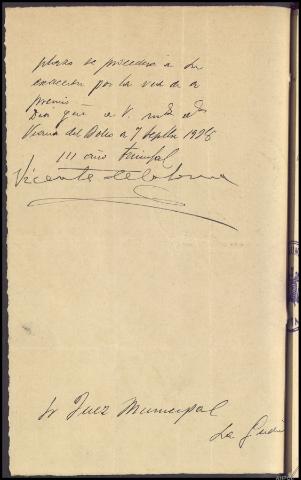 plazo se procederá a su
exacción por la via de a
premio
Dios gue a V. m.s a.s
Viana del Bollo a 7 Septbre 1938
III año Triunfal
Vicente
Sr Juez Municipal
La Gudiña